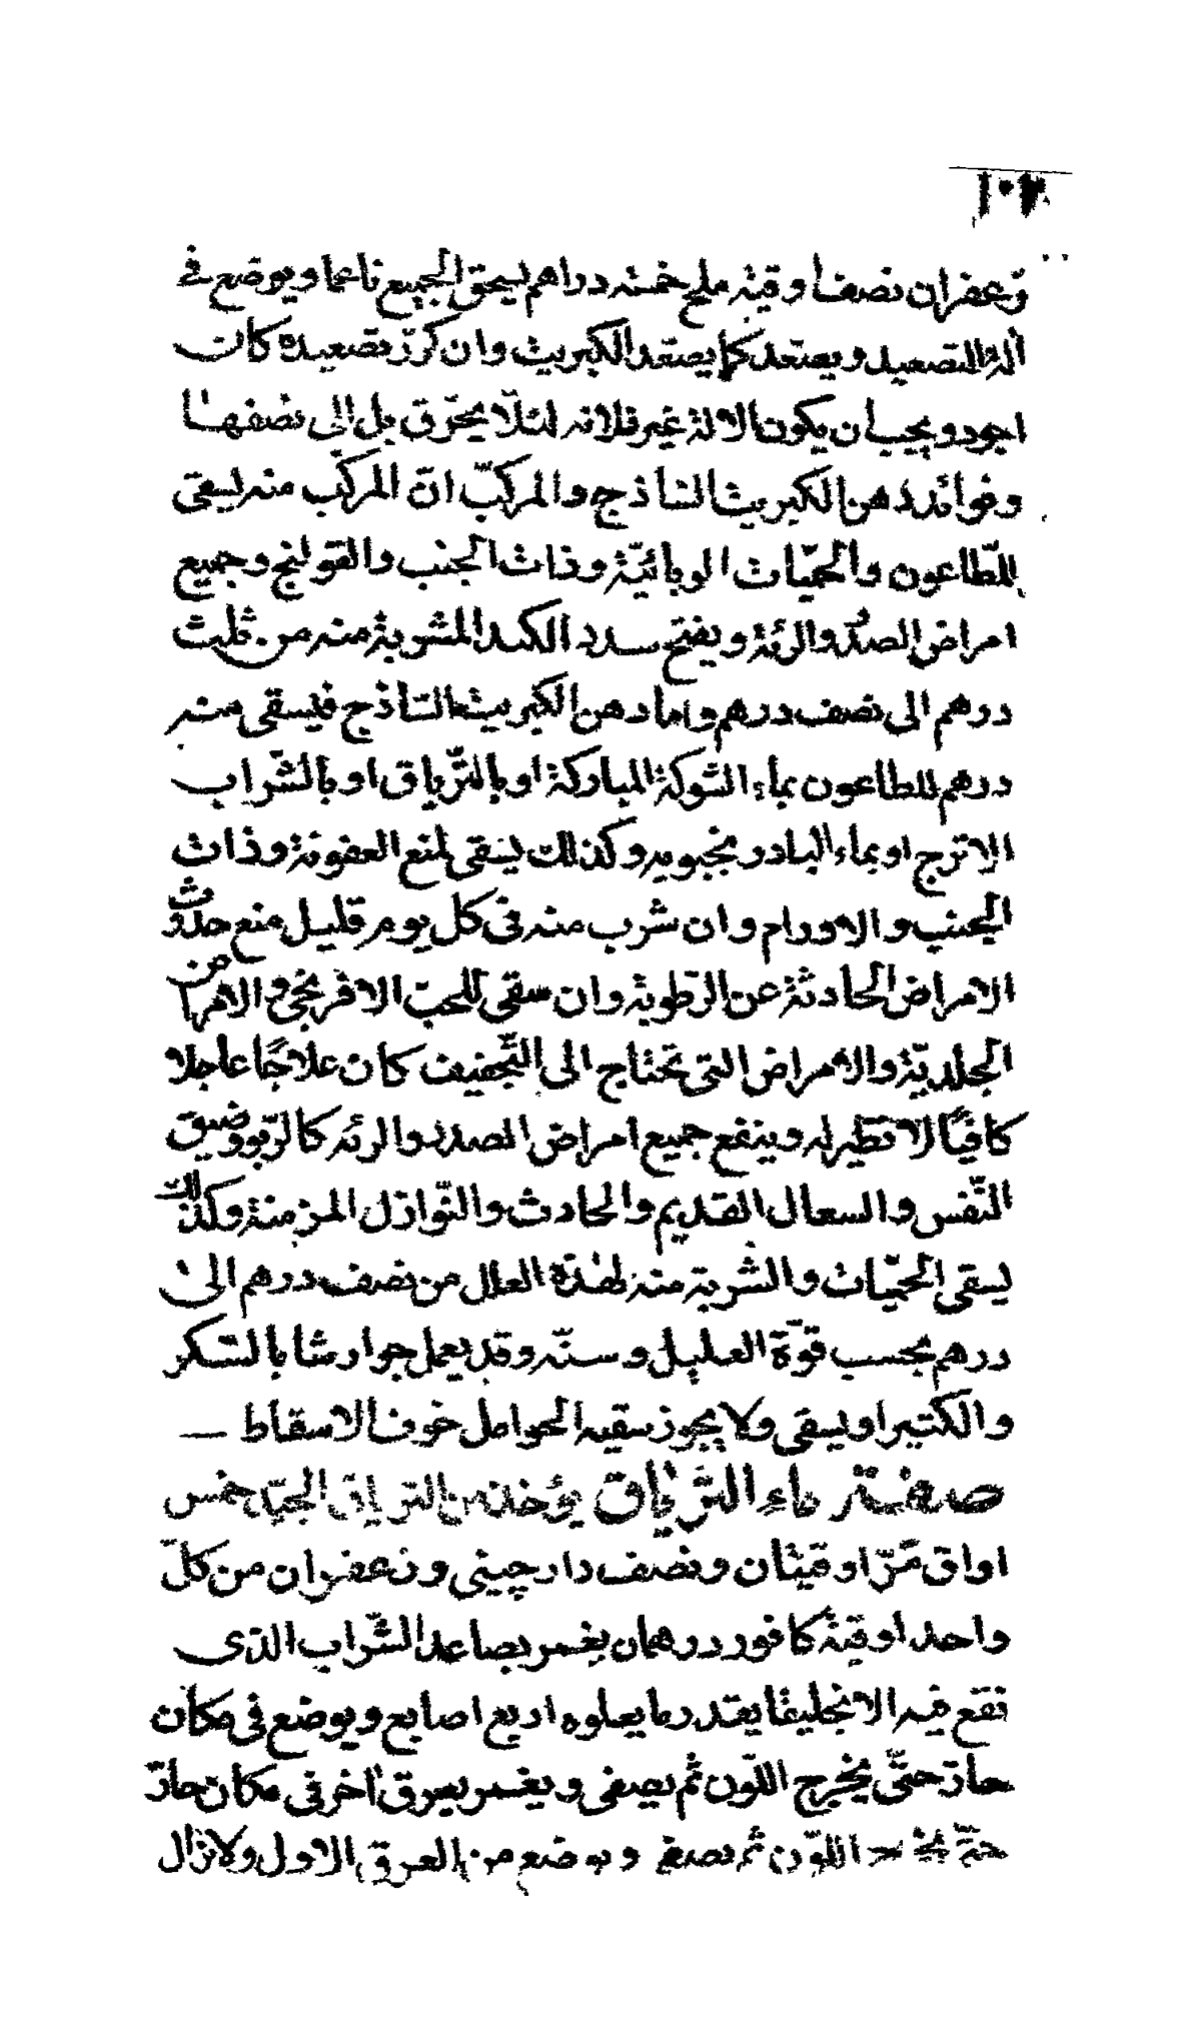 ١٠٢
زعفران نصف اوقية ملح خمسة دراهم يسحق الجميع ناعما ويوضع في
الة التصعيد ويصعد كما يصعد الكبريت وان كرّر تصعيده كان
اجود ويجب ان يكون الالة غير ملانه لئلّا يحرّق بل الى نصفها
وفوائد دهن الكبريت الساذج والمركّب انّ المركب منه يسقى
للطّاعون والحمّيات الوبائيّة وذات الجنب والقولنج وجميع
امراض الصدر والرئة ويفتح سدد الكبد المشوبة منه من ثلث
درهم الى نصف درهم واما دهن الكبريت الساذج فيسقى منه
درهم للطاعون بماء الشوكة المباركة او بالتّرياق او بالشّراب
الاترج او بماء البادرنجبويه وكذلك يسقى لمنع العفونة وذات
الجنب والاورام وان شرب منه في كل يوم قليل منع حدوث
الامراض الحادثة عن الرّطوبة وان سقى للحبّ الافرنجي والامراض
الجلديّة والامراض التي تحتاج الى التّجفيف كان علاجًا عاجلا
كافيًا لا نظير له وينفع جميع امراض الصدر والرئه كالرّبو وضيق
النّفس والسعال القديم والحادث والنّوازل المزمنة وكذلك
يسقى الحمّيات والشربة منه لهذه العلل من نصف درهم الى
درهم بحسب قوّة العليل وسنّه وقد يعمل جوارشا بالسّكر
والكثيرا ويسقى ولا يجوز سقيه الحوامل خوف الاسقاط
صفة ماء الترياق يؤخذ من الترياق الجيّد خمس
اواق مرّ اوقيتان ونصف دارچيني وزعفران من كلّ
واحد اوقية كافور درهمان يغمر بصاعد الشّراب الذي
نقع فيه الانجليقا بقدر ما يعلوه اربع اصابع ويوضع في مكان
حارّ حتّى يخرج اللّون ثم يصفى ويغمر بعرق اخر في مكان حارّ
حتّى يخرج اللّون ثم يصفى ويوضع من العرق الاول ولا تزال